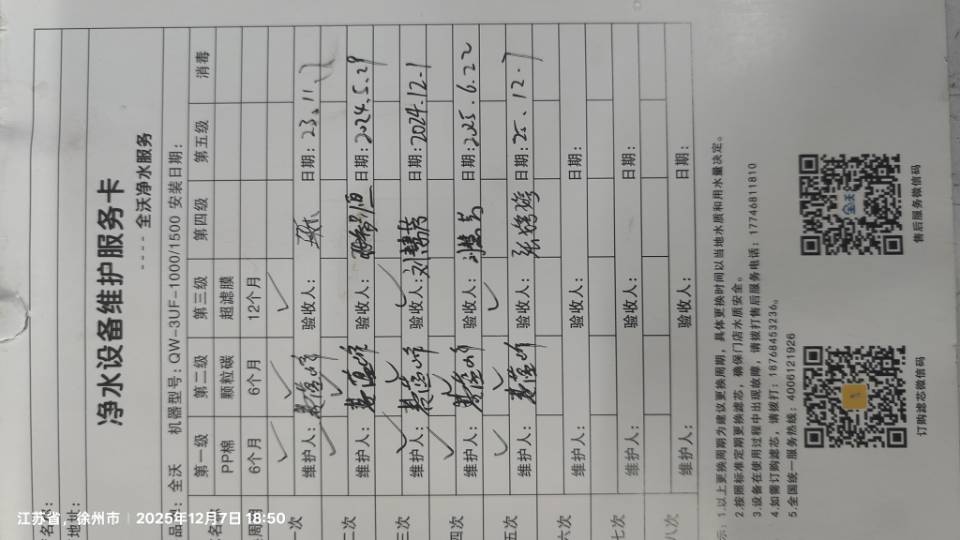 净水设备维护服务卡
---- 全沃净水服务
名称：
地址：
品牌：全沃 机器型号：QW-3UF-1000/1500 安装日期：
第一级 第二级 第三级 第四级 第五级 消毒
名称 PP棉 颗粒碳 超滤膜
周期 6个月 6个月 12个月
一次 ✓ ✓ ✓
维护人： 验收人： 日期：23.11.
二次 ✓ ✓
维护人： 验收人： 日期：2024.5.29
三次 ✓ ✓ ✓
维护人： 验收人：刘 日期：2024.12.1
四次 ✓
维护人： 验收人： 日期：2025.6.22
五次 ✓ ✓ ✓
维护人： 验收人：张 日期：25.12.7
六次
维护人： 验收人： 日期：
七次
维护人： 验收人： 日期：
八次
维护人： 验收人： 日期：
示：1.以上更换周期为建议更换周期，具体更换时间以当地水质和用水量决定。
2.按照标准定期更换滤芯，确保门店水质安全。
3.设备在使用过程中出现故障，请拨打售后服务电话：17746811810
4.如需订购滤芯，请拨打：18768453236。
5.全国统一服务热线：4006121926
订购滤芯微信码
全沃
售后服务微信码
江苏省，徐州市 | 2025年12月7日 18:50